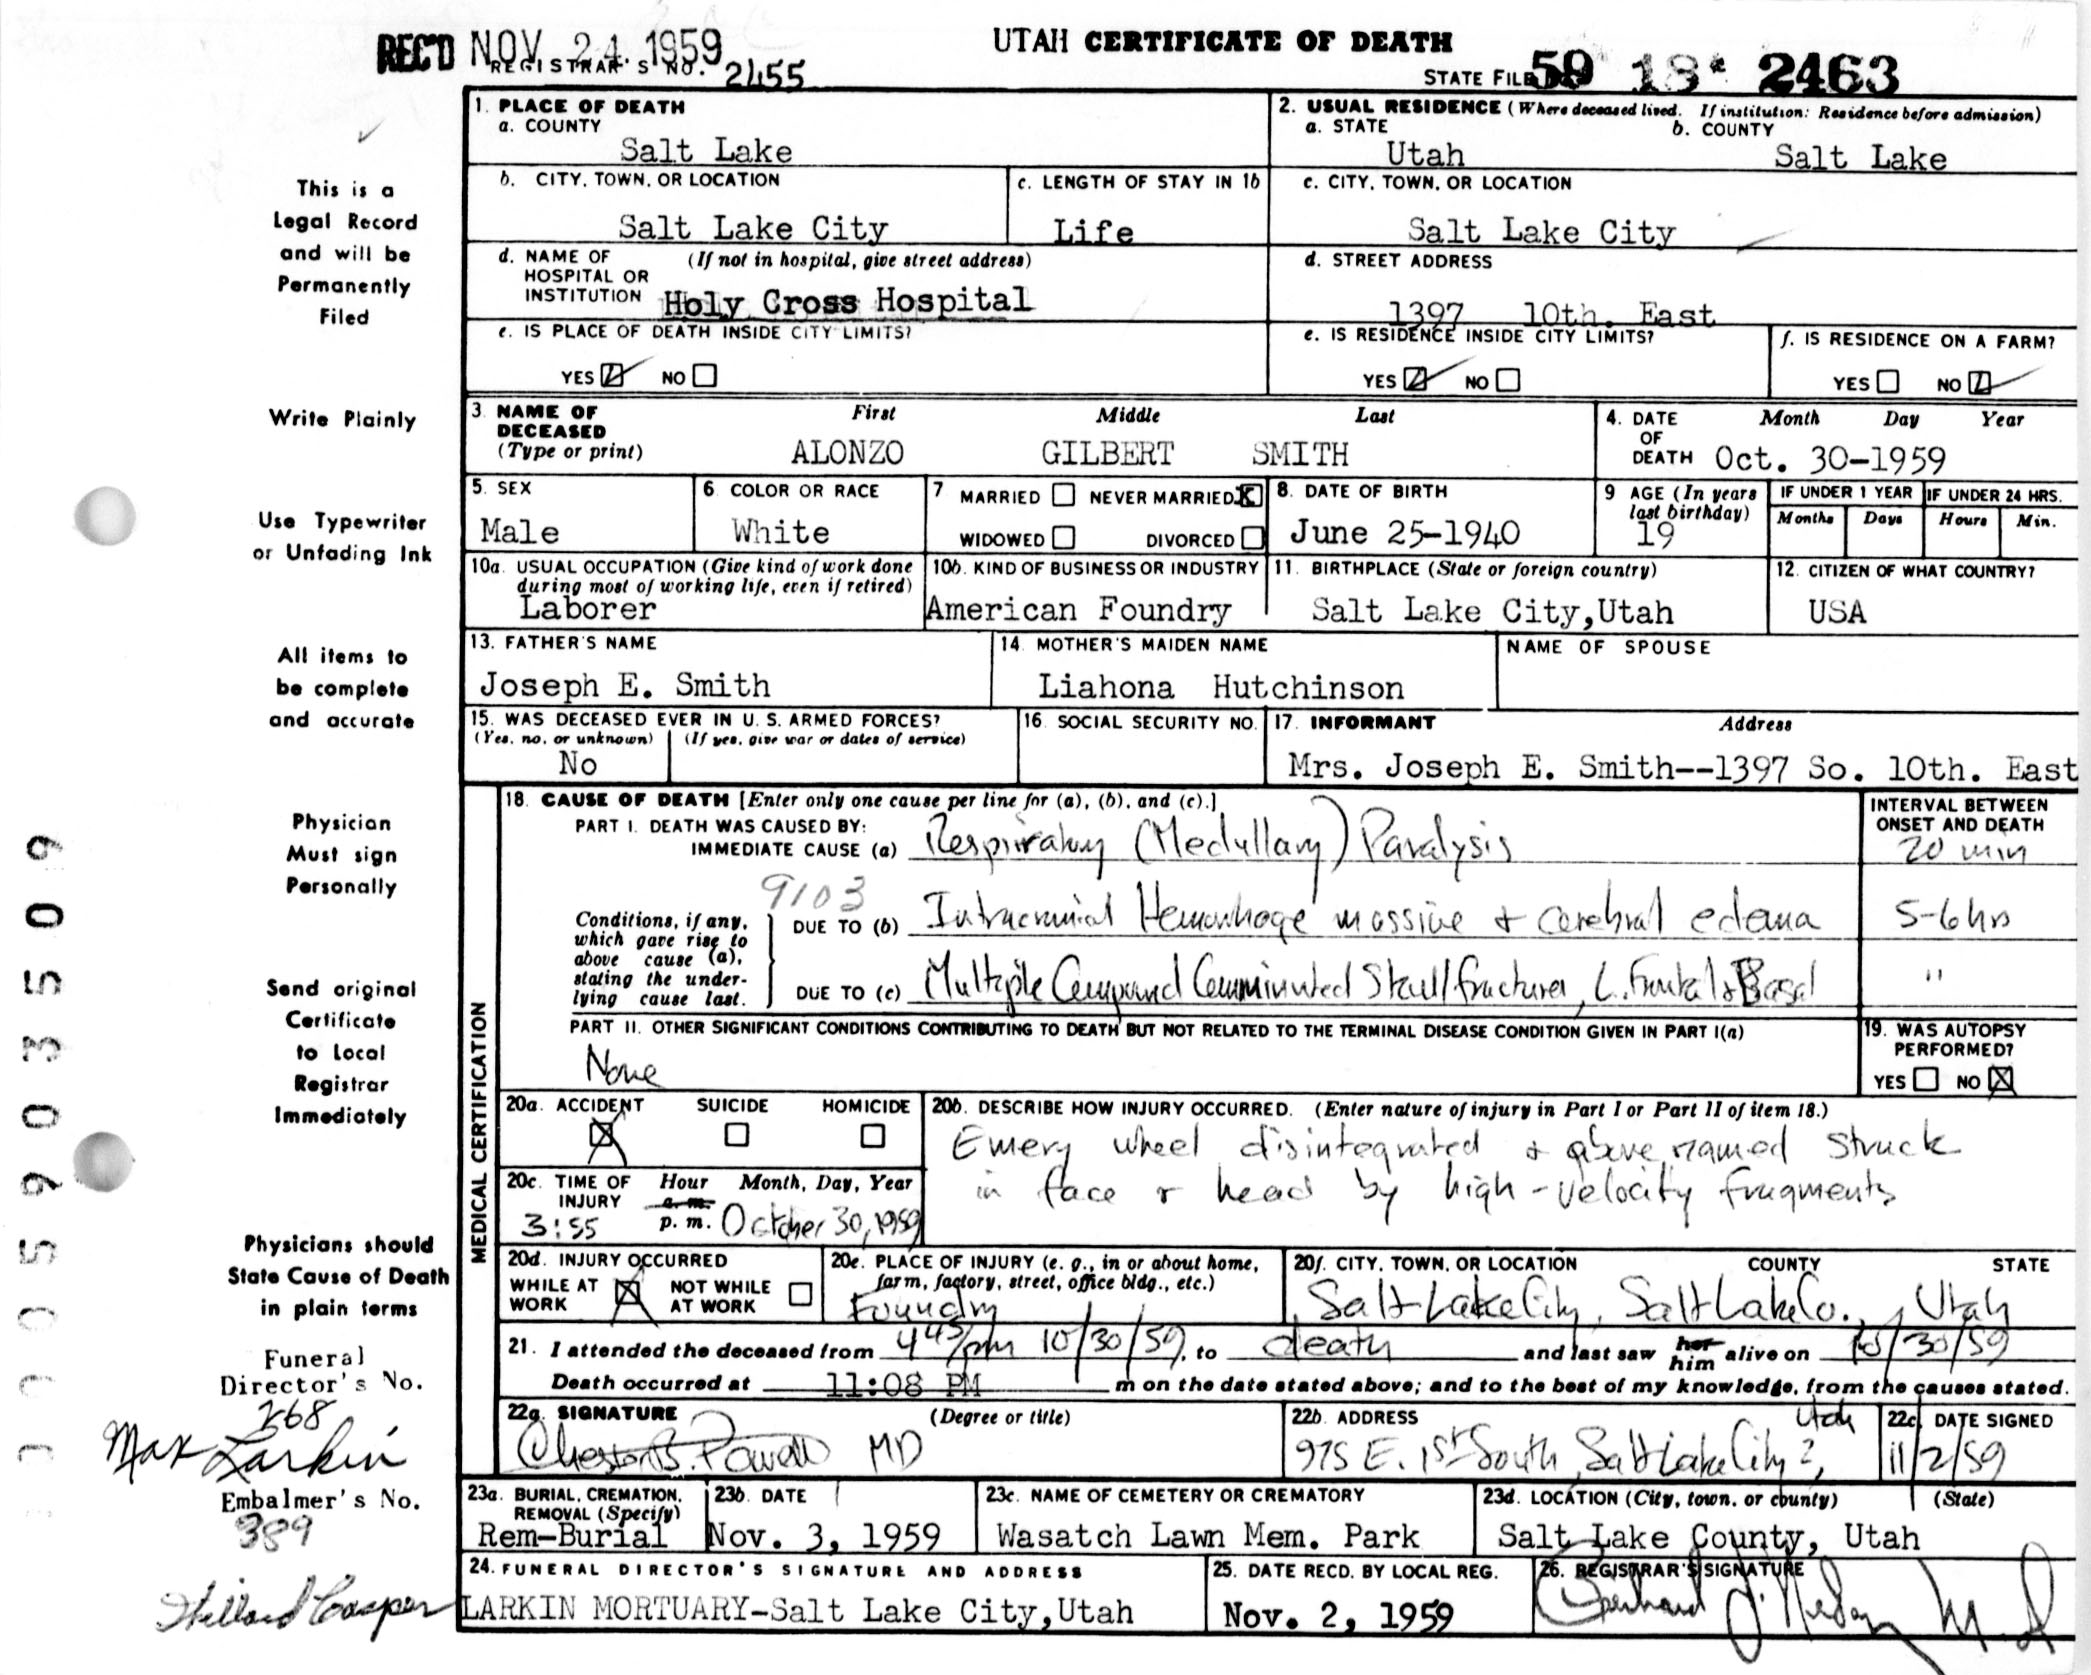 REC'D NOV 24 1959
REGISTRAR'S NO. 2455
UTAH CERTIFICATE OF DEATH
STATE FILE 59 18 2463
This is a
Legal Record
and will be
Permanently
Filed
Write Plainly
Use Typewriter
or Unfading Ink
All items to
be complete
and accurate
Physician
Must sign
Personally
Send original
Certificate
to Local
Registrar
Immediately
Physicians should
State Cause of Death
in plain terms
Funeral
Director's No.
268
Max Larkin
Embalmer's No.
389
Cooper
005903509
1. PLACE OF DEATH
a. COUNTY
Salt Lake
2. USUAL RESIDENCE (Where deceased lived. If institution: Residence before admission)
a. STATE b. COUNTY
Utah Salt Lake
b. CITY, TOWN, OR LOCATION
Salt Lake City
c. LENGTH OF STAY IN 1b
Life
c. CITY, TOWN, OR LOCATION
Salt Lake City
d. NAME OF (If not in hospital, give street address)
HOSPITAL OR
INSTITUTION Holy Cross Hospital
d. STREET ADDRESS
1397 10th. East
e. IS PLACE OF DEATH INSIDE CITY LIMITS?
YES NO
e. IS RESIDENCE INSIDE CITY LIMITS?
YES NO
f. IS RESIDENCE ON A FARM?
YES NO
3. NAME OF First Middle Last
DECEASED
(Type or print) ALONZO GILBERT SMITH
4. DATE Month Day Year
OF
DEATH Oct. 30-1959
5. SEX
Male
6. COLOR OR RACE
White
7 MARRIED NEVER MARRIED X
WIDOWED DIVORCED
8. DATE OF BIRTH
June 25-1940
9 AGE (In years
last birthday)
19
IF UNDER 1 YEAR
Months Days
IF UNDER 24 HRS.
Hours Min.
10a. USUAL OCCUPATION (Give kind of work done
during most of working life, even if retired)
Laborer
10b. KIND OF BUSINESS OR INDUSTRY
American Foundry
11. BIRTHPLACE (State or foreign country)
Salt Lake City,Utah
12. CITIZEN OF WHAT COUNTRY?
USA
13. FATHER'S NAME
Joseph E. Smith
14. MOTHER'S MAIDEN NAME
Liahona Hutchinson
NAME OF SPOUSE
15. WAS DECEASED EVER IN U. S. ARMED FORCES?
(Yes, no, or unknown) (If yes, give war or dates of service)
No
16. SOCIAL SECURITY NO.
17. INFORMANT Address
Mrs. Joseph E. Smith--1397 So. 10th. East
MEDICAL CERTIFICATION
18. CAUSE OF DEATH [Enter only one cause per line for (a), (b), and (c).]
PART I. DEATH WAS CAUSED BY:
IMMEDIATE CAUSE (a) Respiratory (Medullary) Paralysis
INTERVAL BETWEEN
ONSET AND DEATH
20 min
9103
Conditions, if any,
which gave rise to
above cause (a),
stating the under-
lying cause last.
DUE TO (b) Intracranial Hemorrhage massive + cerebral edema
5-6 hrs
DUE TO (c) Multiple Compound Comminuted Skull fractures, L. Frontal & Basal
"
PART II. OTHER SIGNIFICANT CONDITIONS CONTRIBUTING TO DEATH BUT NOT RELATED TO THE TERMINAL DISEASE CONDITION GIVEN IN PART I(a)
None
19. WAS AUTOPSY
PERFORMED?
YES NO X
20a. ACCIDENT SUICIDE HOMICIDE
X
20b. DESCRIBE HOW INJURY OCCURRED. (Enter nature of injury in Part I or Part II of item 18.)
Emery wheel disintegrated + above named struck
in face + head by high-velocity fragments
20c. TIME OF Hour Month, Day, Year
INJURY a.m.
3:55 p. m. October 30, 1959
20d. INJURY OCCURRED
WHILE AT WORK X NOT WHILE AT WORK
20e. PLACE OF INJURY (e. g., in or about home,
farm, factory, street, office bldg., etc.)
Foundry
20f. CITY, TOWN, OR LOCATION COUNTY STATE
Salt Lake City, Salt Lake Co., Utah
21. I attended the deceased from 4 45/pm 10/30/59, to death and last saw her him alive on 10/30/59
Death occurred at 11:08 PM m on the date stated above; and to the best of my knowledge, from the causes stated.
22a. SIGNATURE (Degree or title)
Chester B. Powell MD
22b. ADDRESS
975 E. 1st South, Salt Lake City 2, Utah
22c. DATE SIGNED
11/2/59
23a. BURIAL, CREMATION,
REMOVAL (Specify)
Rem-Burial
23b. DATE
Nov. 3, 1959
23c. NAME OF CEMETERY OR CREMATORY
Wasatch Lawn Mem. Park
23d. LOCATION (City, town, or county) (State)
Salt Lake County, Utah
24. FUNERAL DIRECTOR'S SIGNATURE AND ADDRESS
LARKIN MORTUARY-Salt Lake City,Utah
25. DATE RECD. BY LOCAL REG.
Nov. 2, 1959
26. REGISTRAR'S SIGNATURE